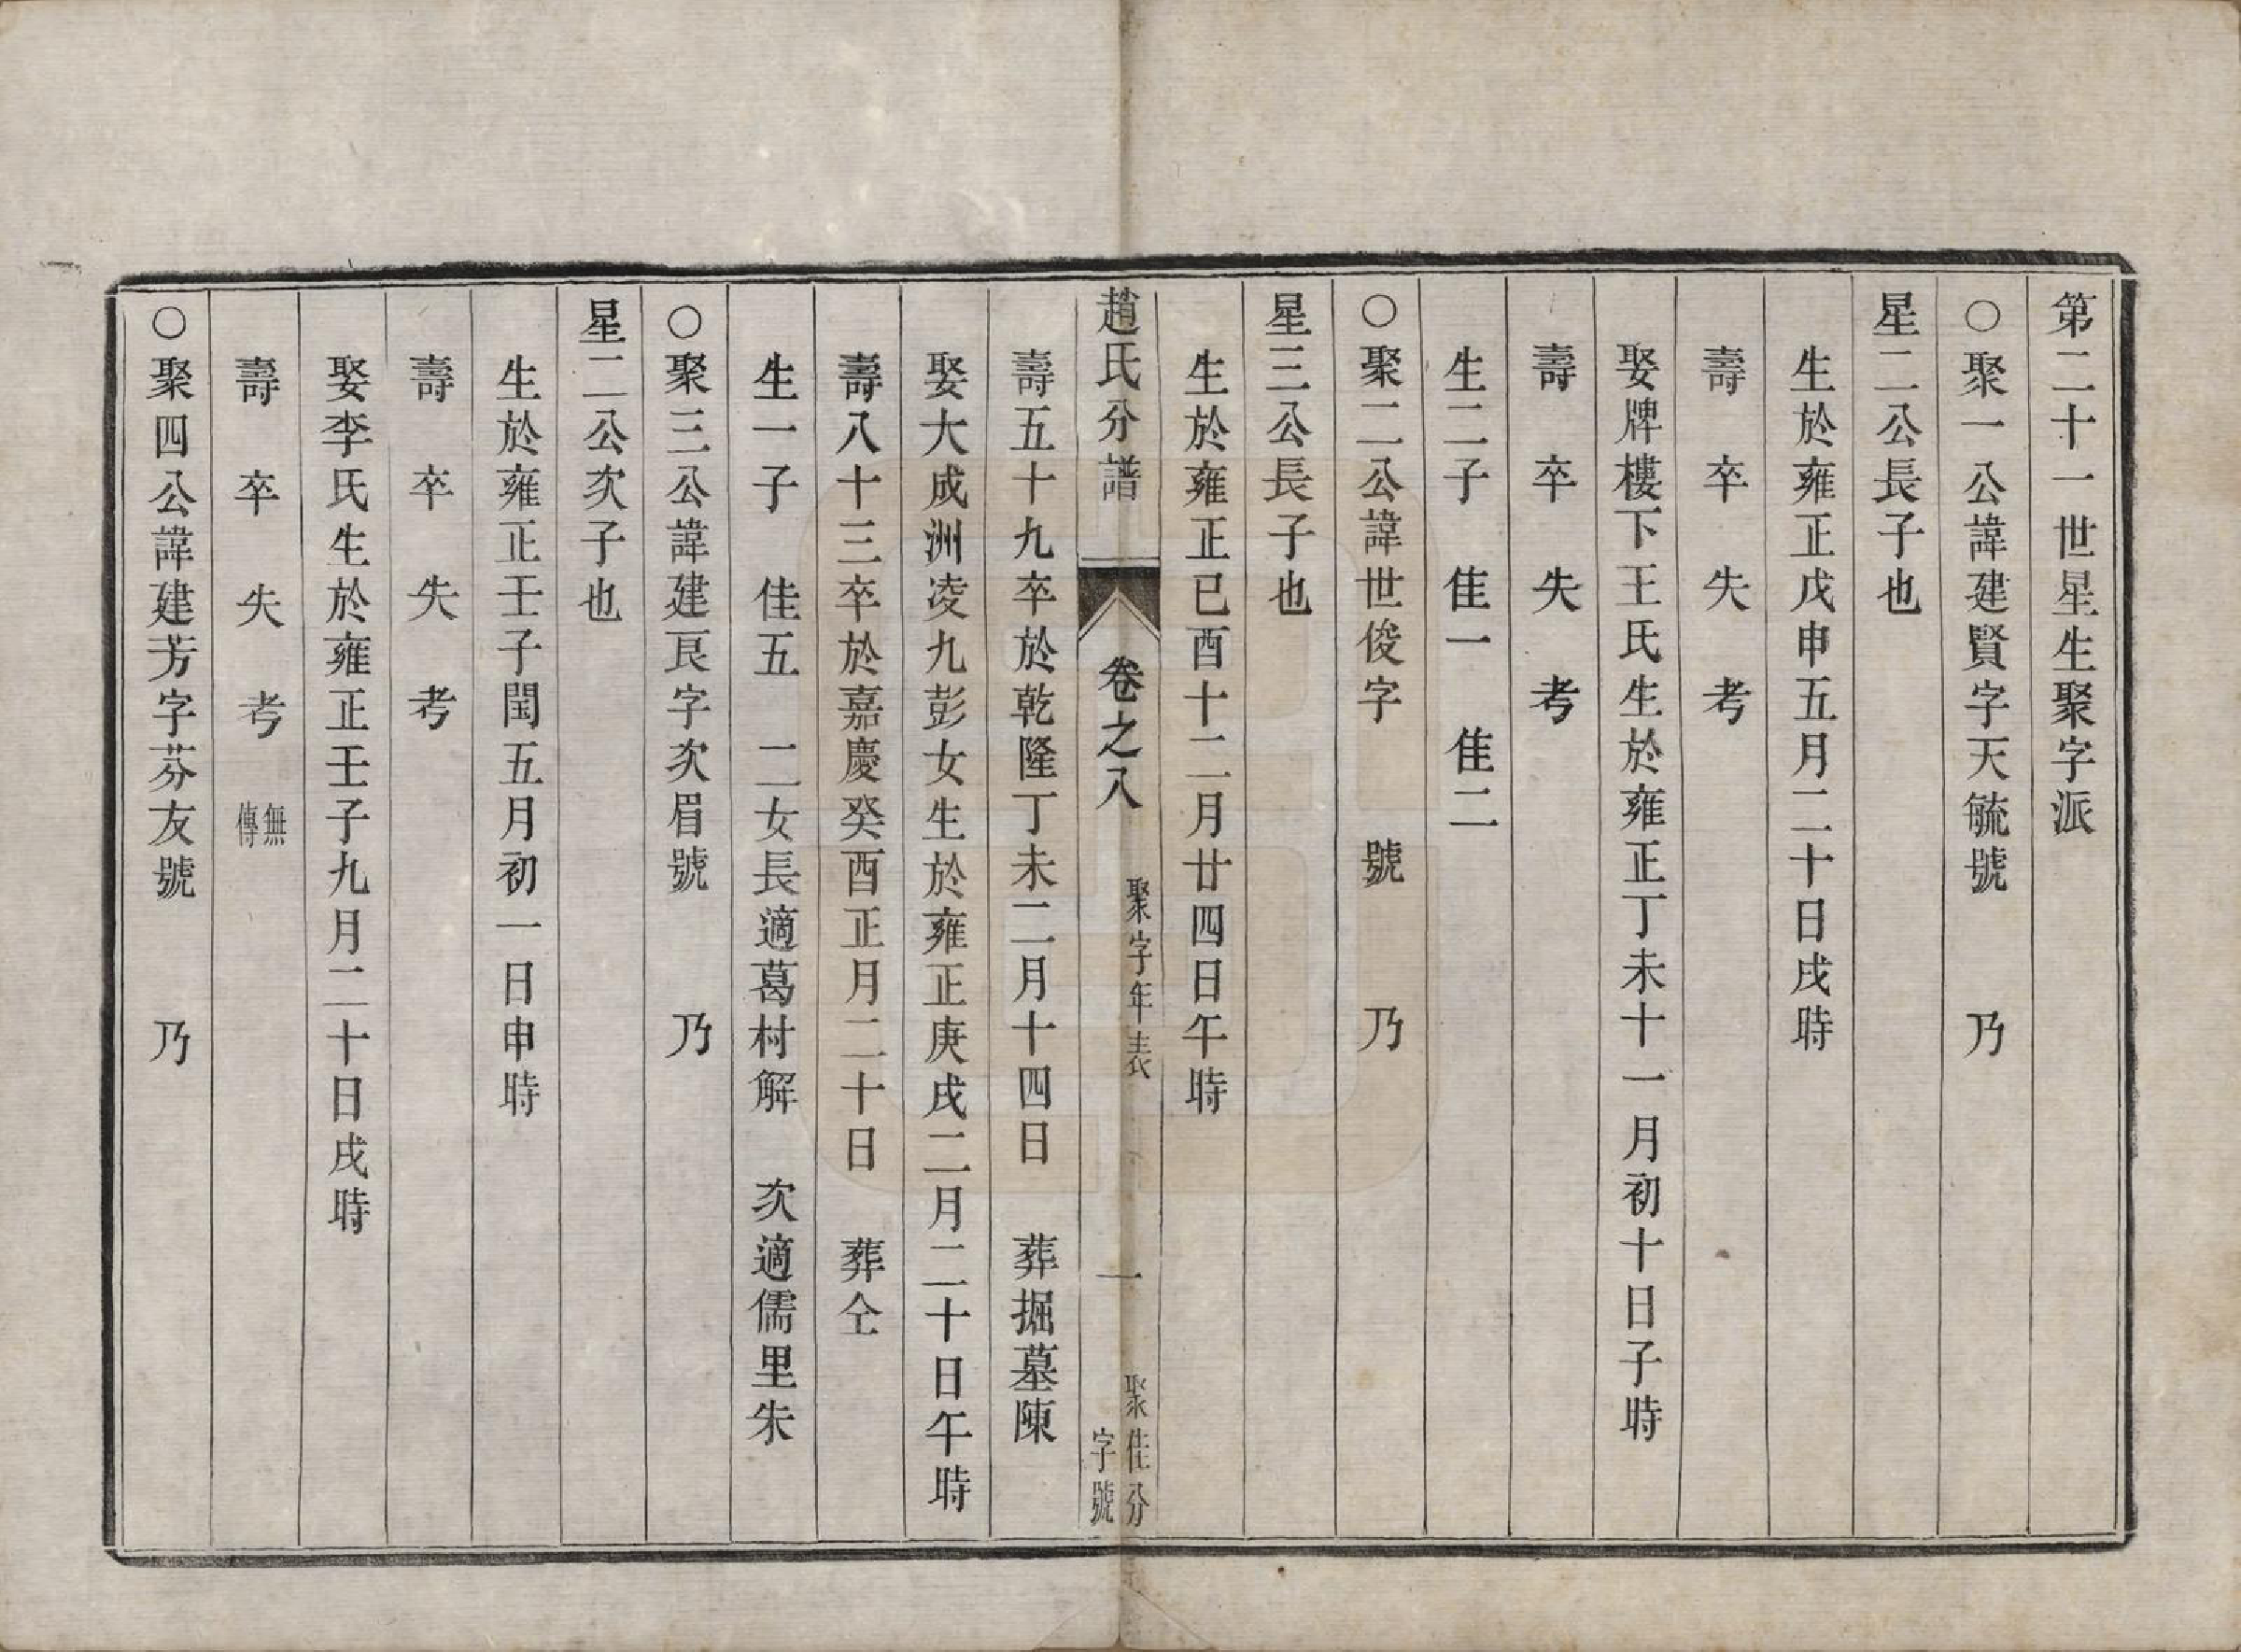 第二十一世星生聚字派
○聚一公諱建賢字天毓號　乃
星二公長子也
生於雍正戊申五月二十日戌時
壽　卒　失　考
娶牌樓下王氏生於雍正丁未十一月初十日子時
壽　卒　失　考
生二子　佳一　佳二
○聚二公諱世俊字　號　乃
星三公長子也
生於雍正已酉十二月廿四日午時
趙氏分譜　卷之八　聚字年表　一　聚佳分字號
壽五十九卒於乾隆丁未二月十四日　葬掘墓陳
娶大成洲凌九彭女生於雍正庚戌二月二十日午時
壽八十三卒於嘉慶癸酉正月二十日　葬仝
生一子　佳五　二女長適葛村解　次適儒里朱
○聚三公諱建良字次眉號　乃
星二公次子也
生於雍正壬子閏五月初一日申時
壽　卒　失　考
娶李氏生於雍正壬子九月二十日戌時
壽　卒　失　考　無傳
○聚四公諱建芳字芬友號　乃